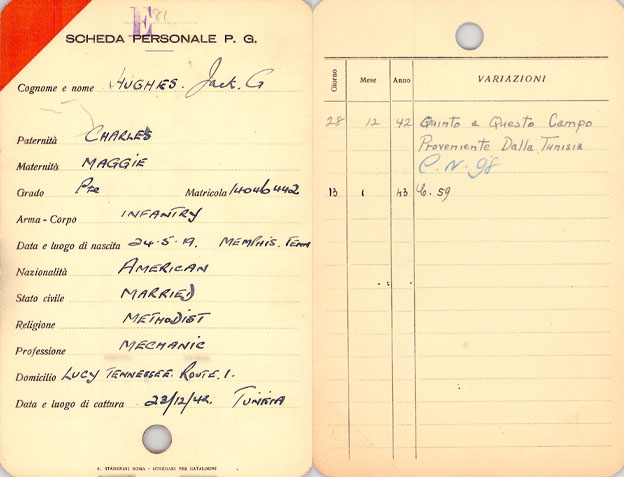 E 81
SCHEDA PERSONALE P. G.
Cognome e nome HUGHES. Jack. G
Paternità CHARLES
Maternità MAGGIE
Grado Pte Matricola 140464402
Arma - Corpo INFANTRY
Data e luogo di nascita 24.5.19. MEMPHIS. TENN
Nazionalità AMERICAN
Stato civile MARRIED
Religione METHODIST
Professione MECHANIC
Domicilio LUCY TENNESSEE. ROUTE. 1.
Data e luogo di cattura 23/12/42. TUNISIA
A. STADERINI ROMA - SCHEDARI PER CATALOGHI
Giorno Mese Anno VARIAZIONI
28 12 42 Guinto a Questo Campo
Proveniente Dalla Tunisia
C. N. 98
13 1 43 C. 59